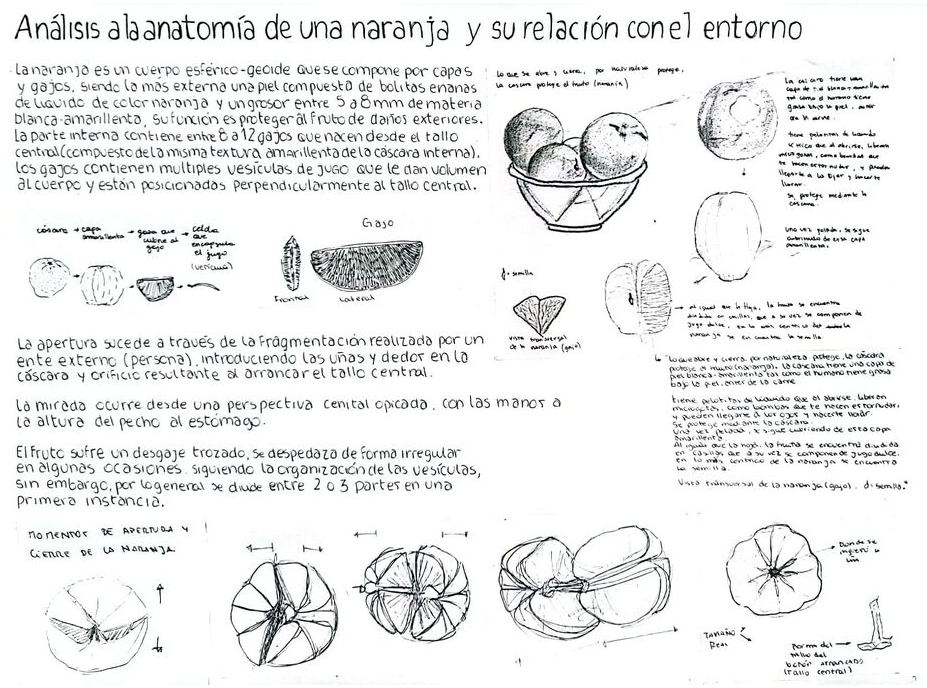 Análisis a la anatomía de una naranja y su relación con el entorno
La naranja es un cuerpo esférico-geoide que se compone por capas
y gajos, siendo la más externa una piel compuesto de bolitas enanas
de líquido de color naranja y un grosor entre 5 a 8mm de materia
blanca-amarillenta, su función es proteger al fruto de daños exteriores.
La parte interna contiene entre 8 a 12 gajos que nacen desde el tallo
central (compuesto de la misma textura amarillenta de la cáscara interna).
Los gajos contienen multiples vesículas de jugo que le dan volumen
al cuerpo y están posicionados perpendicularmente al tallo central.
cáscara → capa amarillenta → gasa que cubre al gajo → celda que encapsula el jugo (vesícula)
Gajo
Frontal
Lateral
La apertura sucede a través de la fragmentación realizada por un
ente externo (persona), introduciendo las uñas y dedor en la
cáscara y orificio resultante al arrancar el tallo central.
La mirada ocurre desde una perspectiva cenital opicada, con las manos a
la altura del pecho al estómago.
El fruto sufre un desgaje trozado, se despedaza de forma irregular
en algunas ocasiones, siguiendo la organización de las vesículas,
sin embargo, por lo general se divide entre 2 o 3 partes en una
primera instancia.
Lo que se abre y cierra, por naturaleza protege,
la cáscara protege el fruto (naranja)
La cáscara tiene una
capa de piel blanca-amarillenta
tal como el humano tiene
grasa bajo la piel, antes
de la carne.
tiene pelotitas de líquido
que al abrirse, liberan
microgotas, como bombas que
te hacen estornudar, y pueden
llegarte a los ojos y hacerte
llorar.
Se protege mediante la
cáscara.
Una vez pelada, se sigue
cubriendo de esta capa
amarillenta.
d = semilla
vista transversal
de la naranja (gajo)
al igual que la hoja, la fruta se encuentra
dividida en casillas, que a su vez se componen de
jugo dulce, en lo más centrico de la
naranja se encuentra la semilla
"Lo que abre y cierra, por naturaleza protege, la cáscara
protege el fruto (naranja). La cáscara tiene una capa de
piel blanca-amarillenta tal como el humano tiene grasa
bajo la piel, antes de la carne
tiene pelotitas de líquido que al abrirse, liberan
microgotas, como bombas que te hacen estornudar,
y pueden llegarte a los ojos y hacerte llorar.
Se protege mediante la cáscara.
Una vez pelada, se sigue cubriendo de esta capa
amarillenta.
Al igual que la hoja, la fruta se encuentra dividida
en casillas que a su vez se componen de jugo dulce,
en lo más centrico de la naranja se encuentra
la semilla.
Vista transversal de la naranja (gajo). d= semilla."
MOMENTOS DE APERTURA Y
CIERRE DE LA NARANJA
Donde se
TAMAÑO
REAL
Forma del
tallo del
botón arrancado
(tallo central)